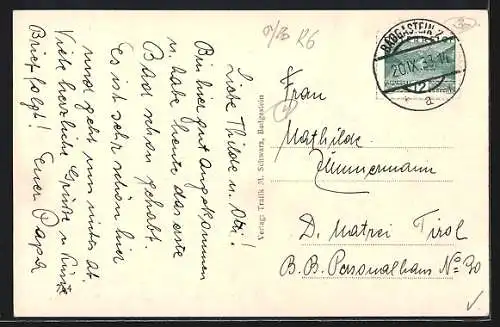 Liebe Thilde u. Otti!
Bin hier gut angekommen
u. habe heute das erste
Bad schon gehabt.
Es ist sehr schön hier
und geht nun unter at
Viele herzliche Grüße u. Küsse
Brief folgt! Euer Papa
Verlag: Trafik M. Schwarz, Badgastein
σ/B R6
BADGASTEIN 2
20.IX.35.14
12
a
Frau
Mathilde
Zimmermann
D. Matrei Tirol
B.B. Personalhaus No 90